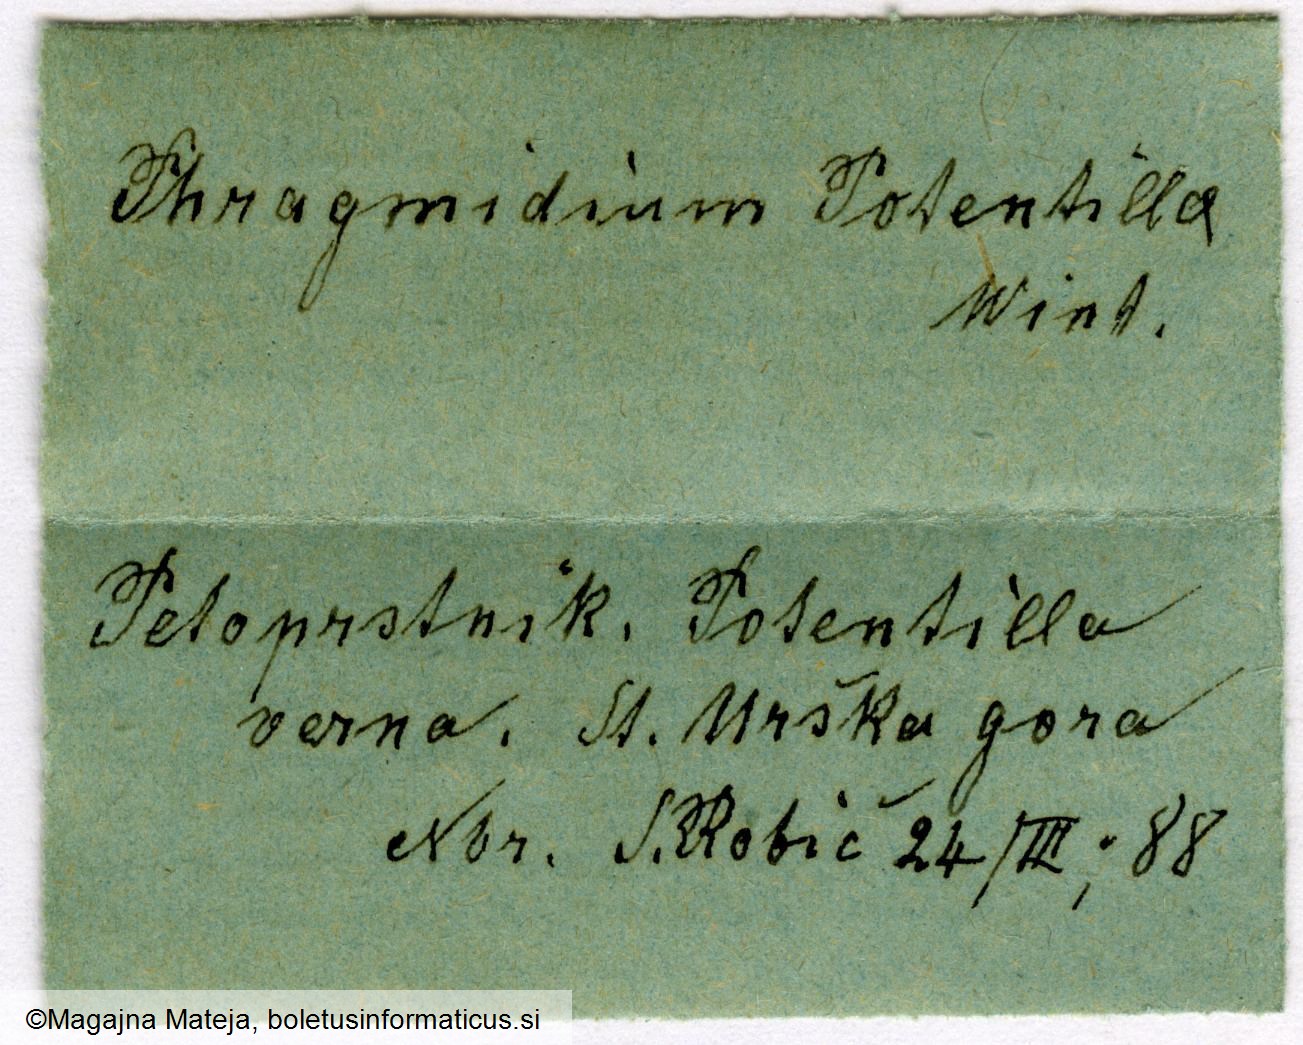 Phragmidium Potentilla
Wint.
Petoprstnik. Potentilla
verna. St. Urška gora
Nbr. S. Robič 24/III, '88
©Magajna Mateja, boletusinformaticus.si